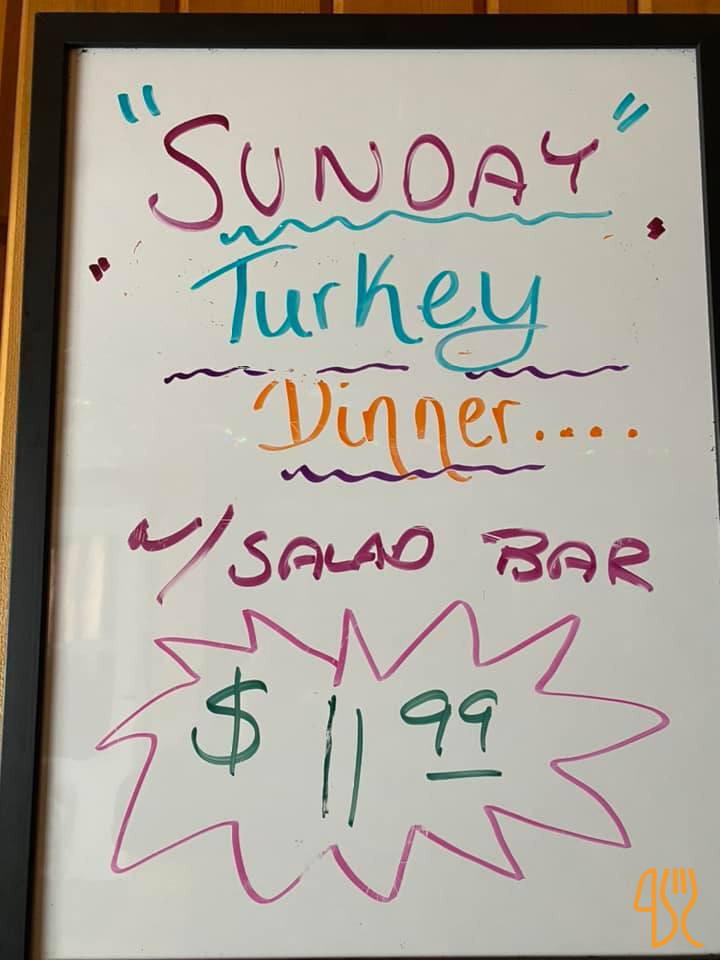 "SUNDAY"
"Turkey"
Dinner....
w/ SALAD BAR
$ 11 99